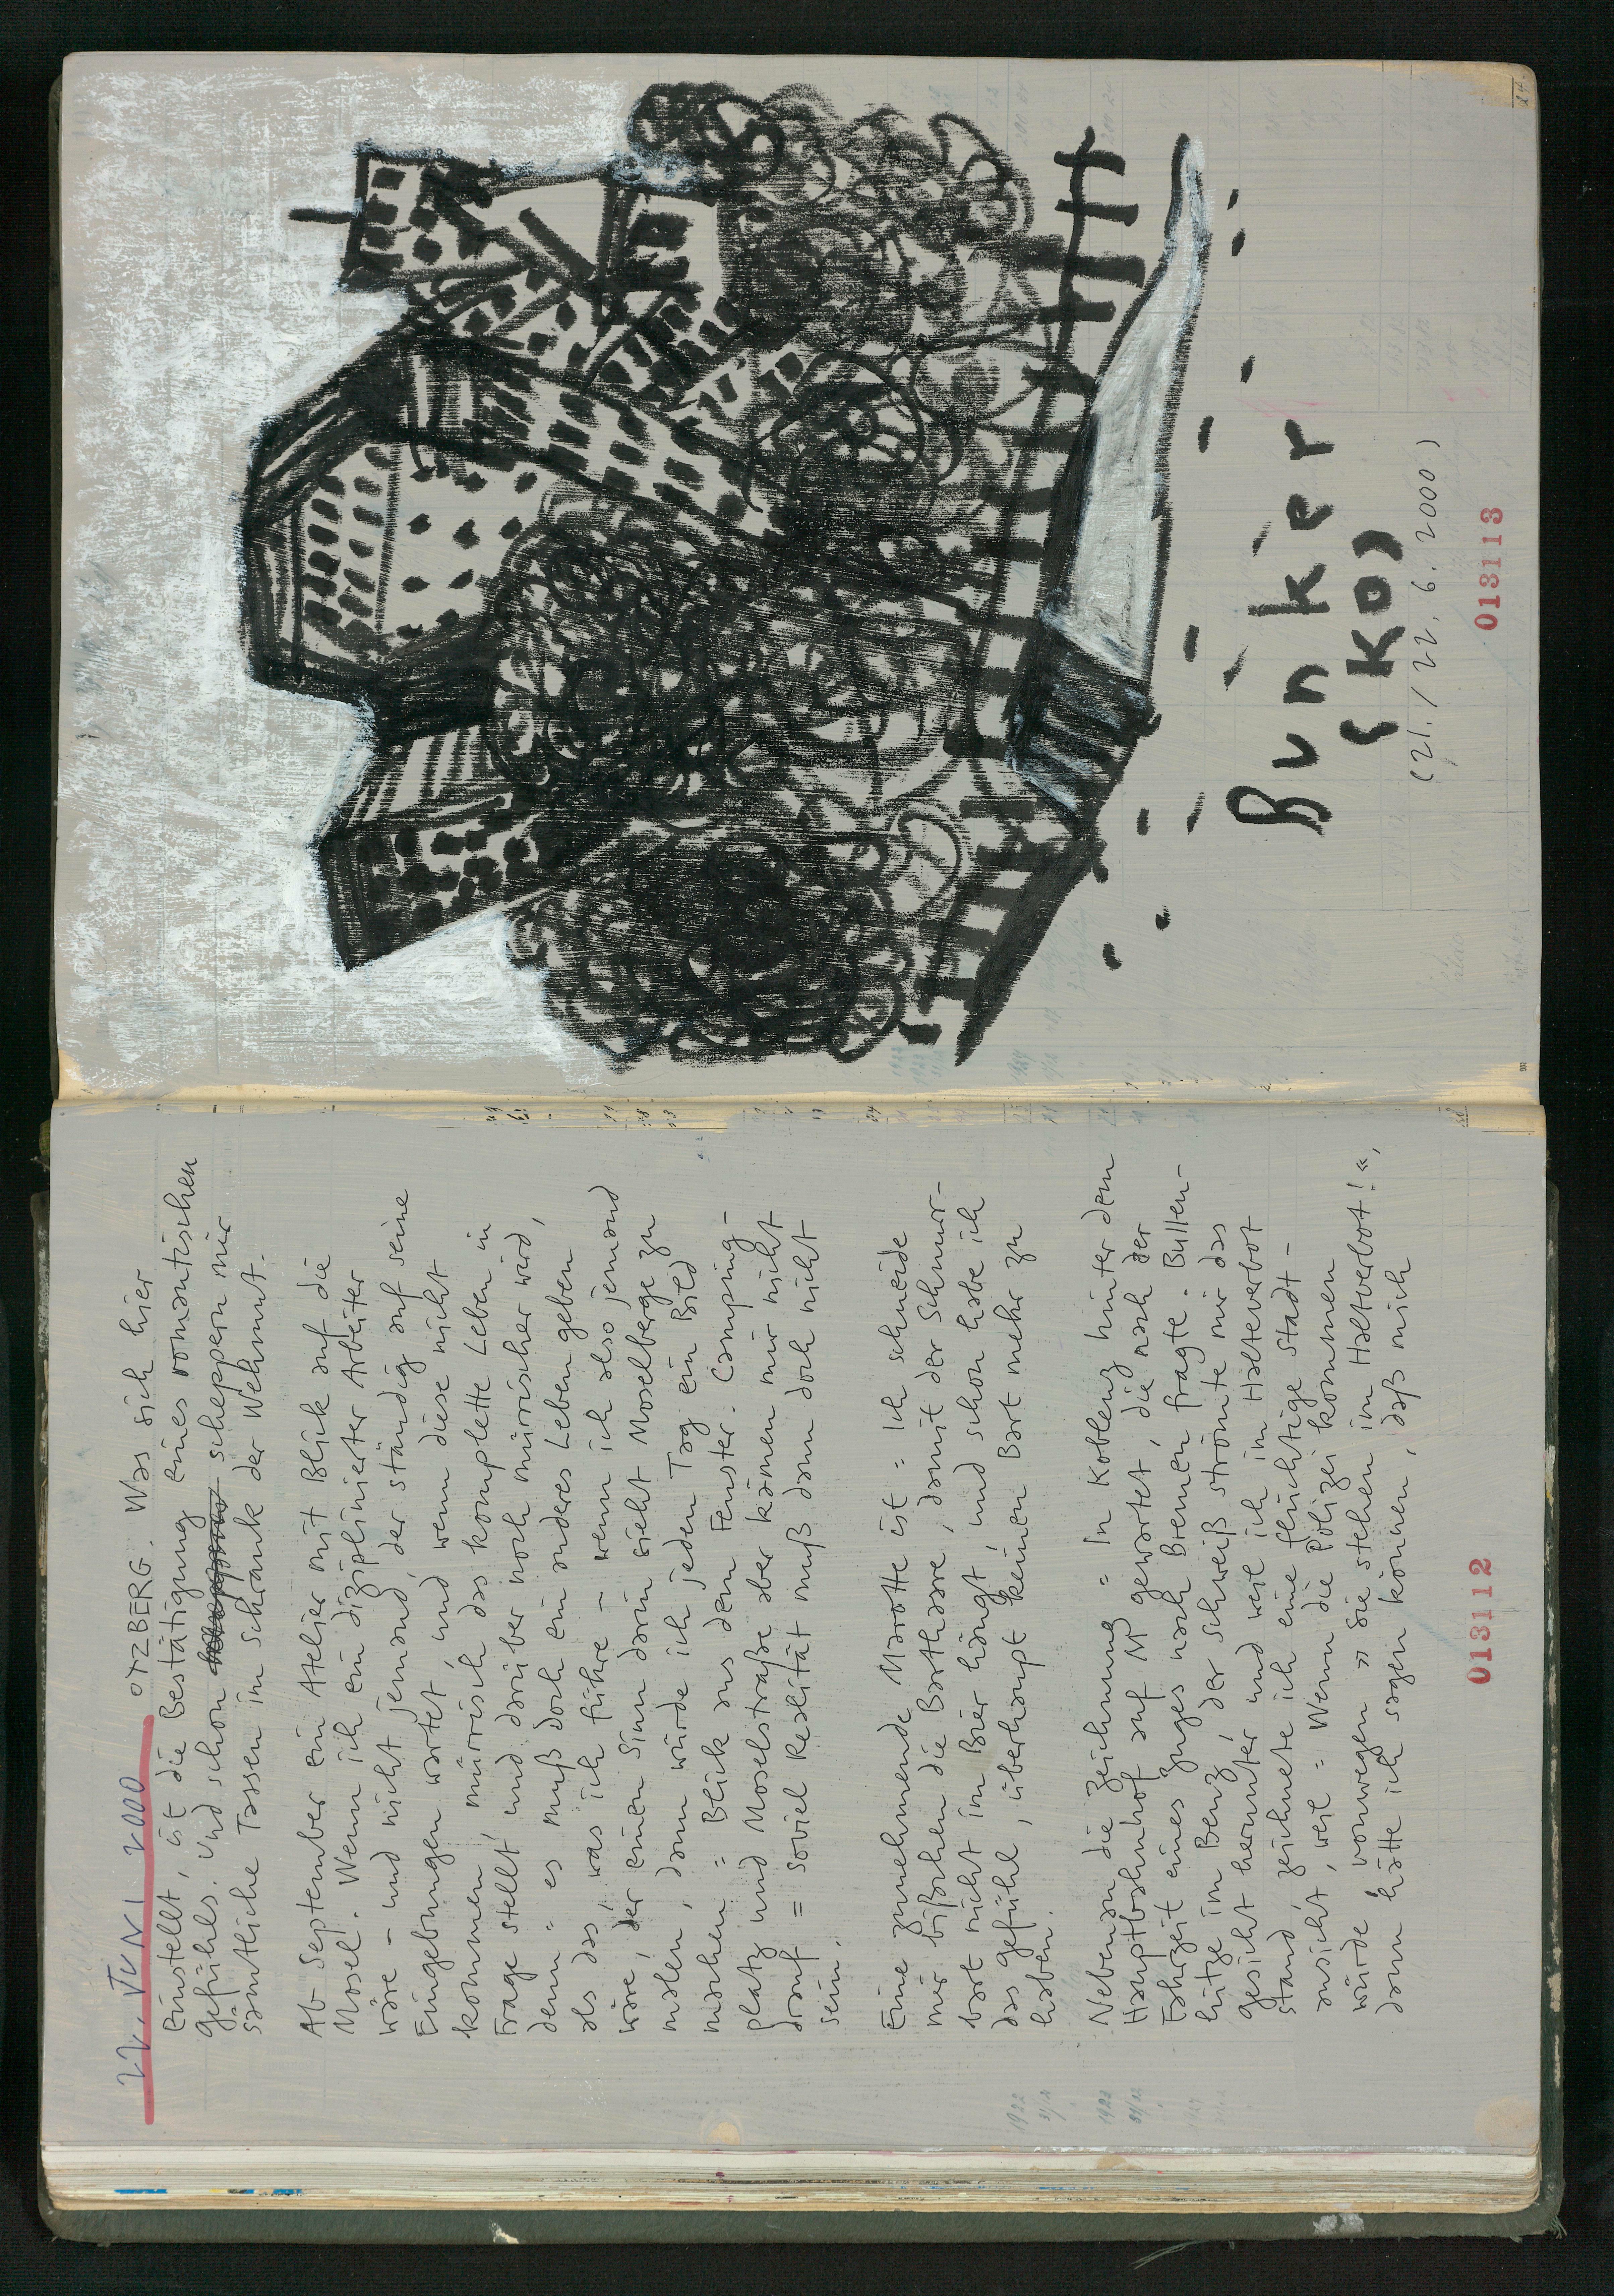 22. JUNI 2000 OTZBERG. Was sich hier
einstellt, ist die Bestätigung eines romantischen
Gefühls. Und schon scheppern mir
sämtliche Tassen im Schrank der Wehmut.
Ab September ein Atelier mit Blick auf die
Mosel. Wenn ich ein disziplinierter Arbeiter
wäre – und nicht jemand, der ständig auf seine
Eingebungen wartet, und, wenn diese nicht
kommen, mürrisch das komplette Leben in
Frage stellt, und darüber noch mürrischer wird,
denn = es muß doch ein anderes Leben geben
als das, was ich führe – wenn ich also jemand
wäre, der einen Sinn darin sieht Moselberge zu
malen, dann würde ich jeden Tag ein Bild
machen = Blick aus dem Fenster. Camping-
platz und Moselstraße aber kämen mir nicht
drauf = soviel Realität muß dann doch nicht
sein.
Eine zunehmende Marotte ist = Ich schneide
mir bißchen die Barthaare, damit der Schnurr-
bart nicht im Bier hängt, und schon habe ich
das Gefühl, überhaupt keinen Bart mehr zu
haben.
Nebenan die Zeichnung = In Koblenz hinter dem
Hauptbahnhof auf M gewartet, die nach der
Fahrzeit eines Zuges nach Bremen fragte. Bullen-
hitze im Benz, der Schweiß strömte mir das
Gesicht herunter, und weil ich im Halteverbot
stand, zeichnete ich eine flüchtige Stadt-
ansicht, weil = Wenn die Polizei kommen
würde, vonwegen »Sie stehen im Halteverbot!«,
dann hätte ich sagen können, daß mich
013112
Bunker
(KO)
(21./22. 6. 2000)
013113